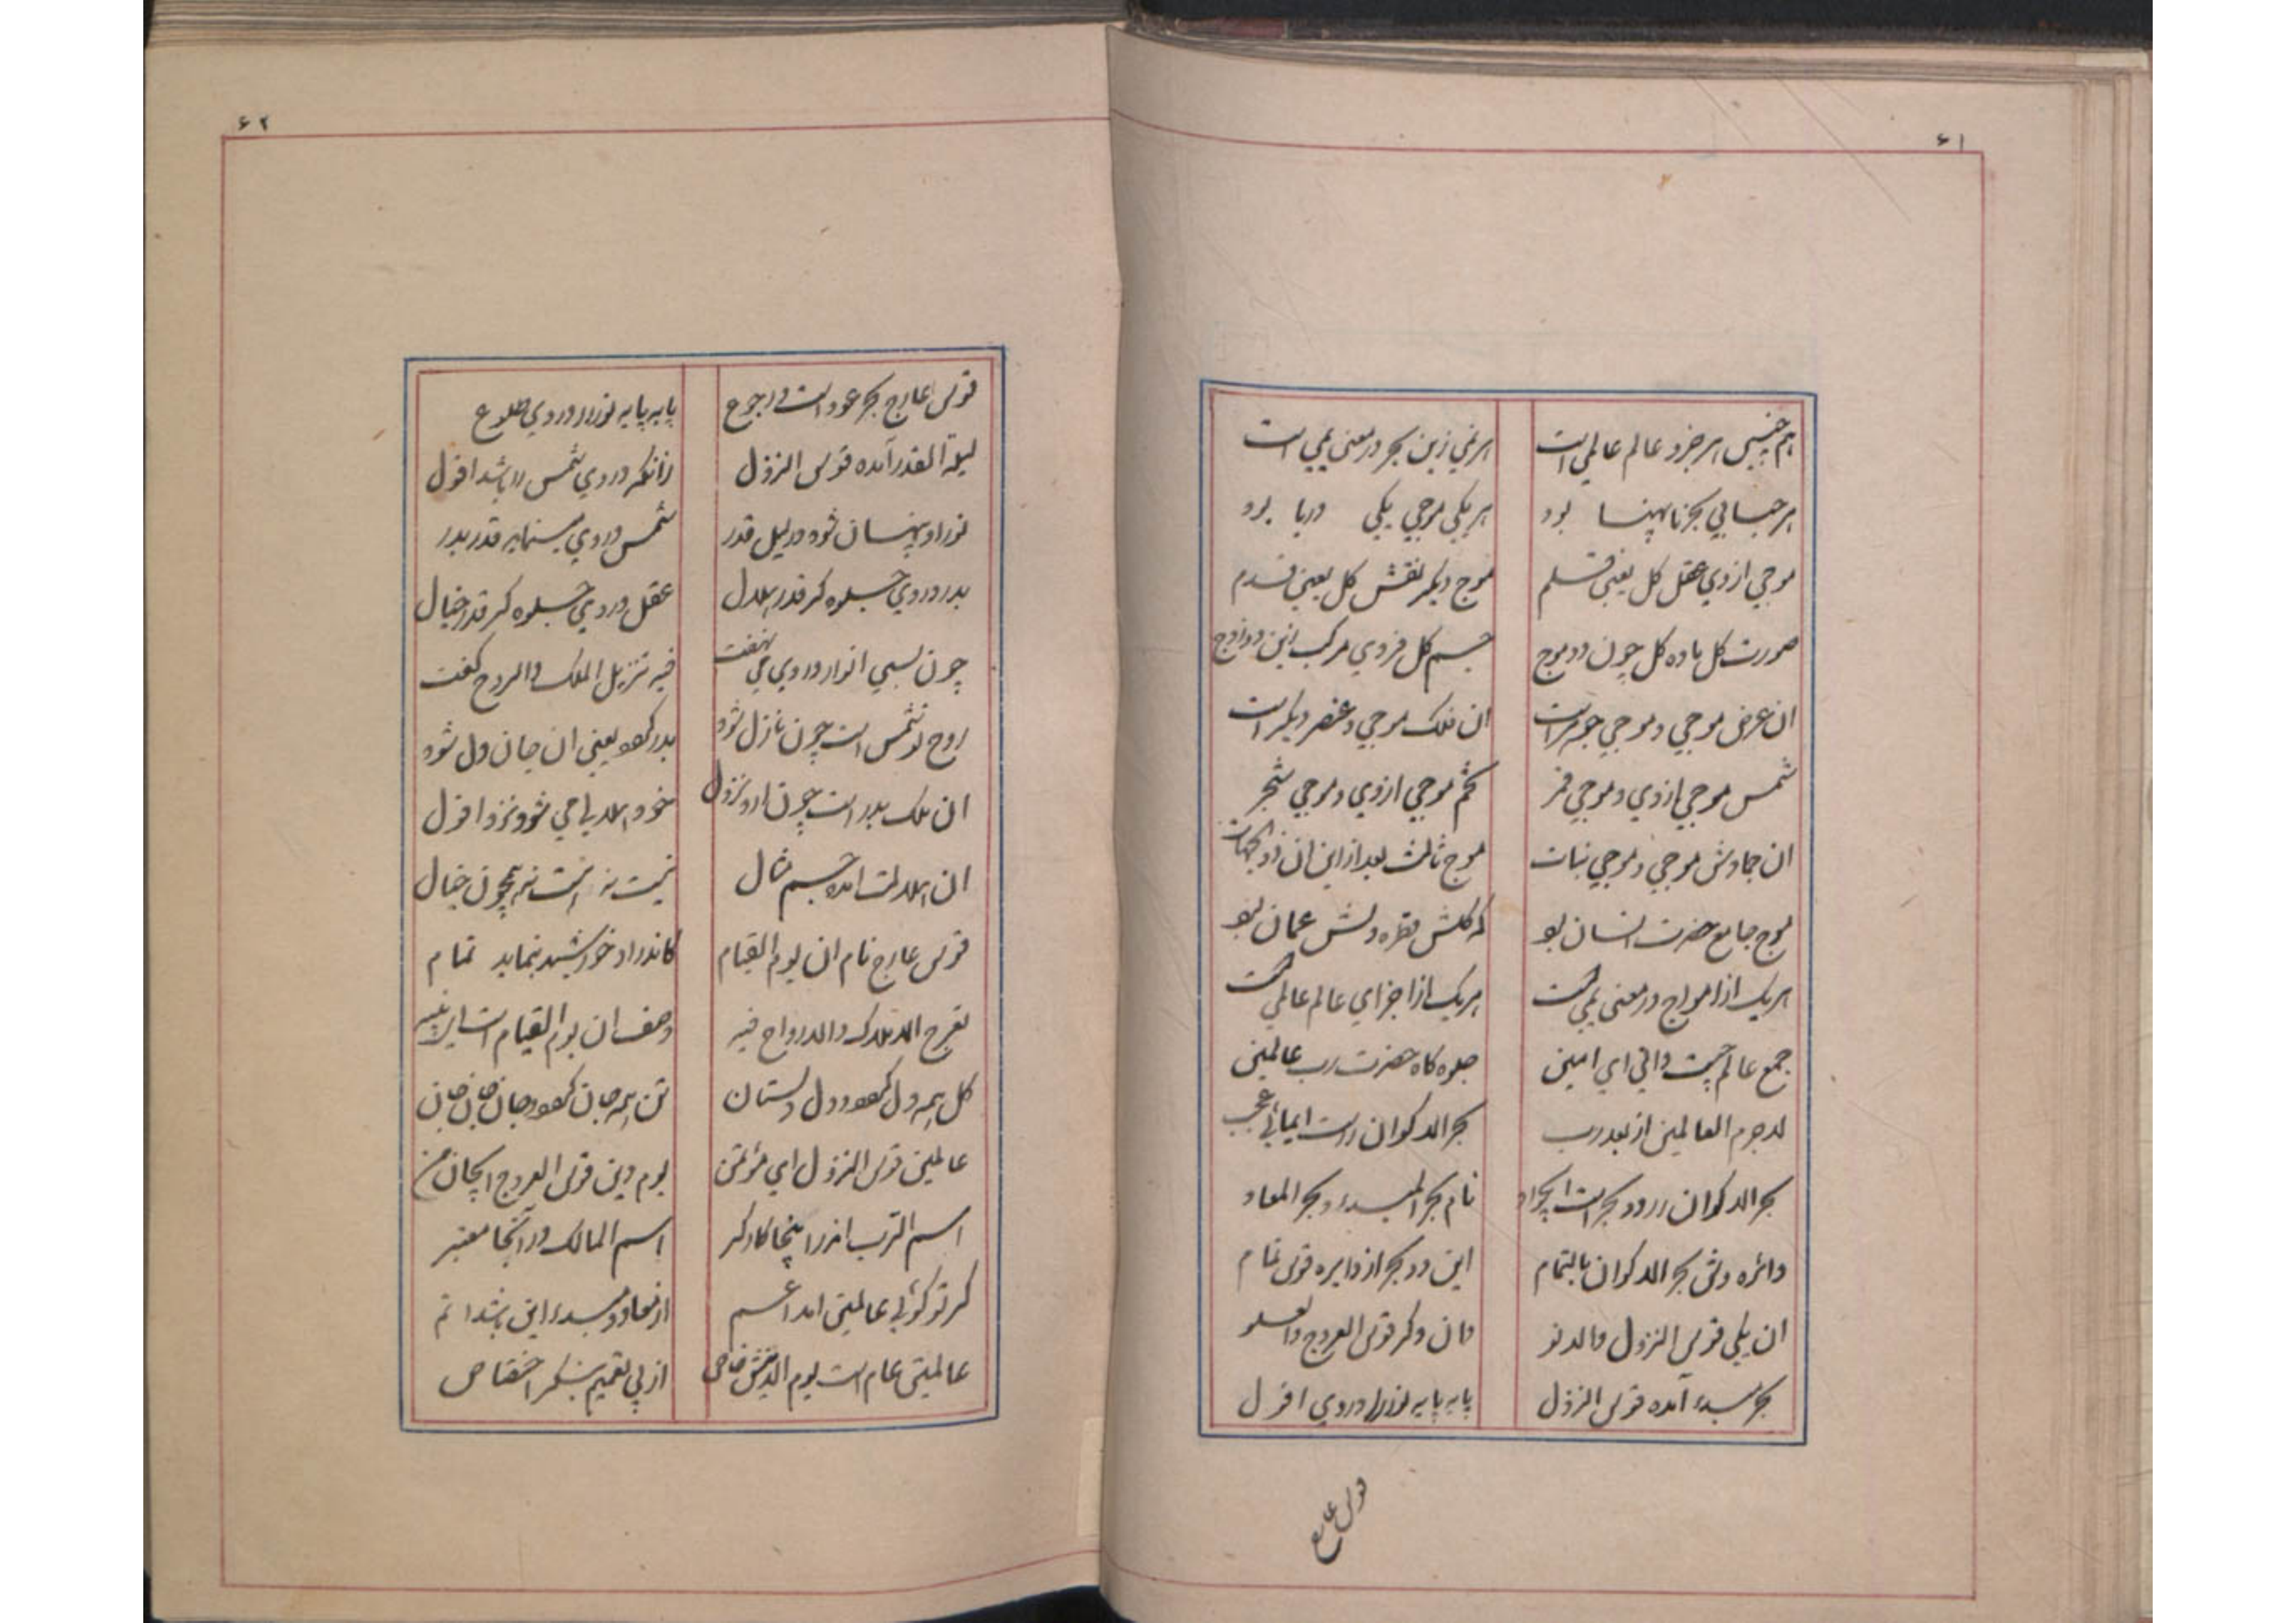 ۶۱
هم چنین هر جزو عالم عالمی است هر نمی زین بحر در معنی یمی است
هر حبابی بحر ناپهنا بود هر یکی موجی یکی دریا بود
موجی ازوی عقل کل یعنی قلم موج دیگر نفس کل یعنی قدم
صورت کل ماده کل چون دو موج جسم کل فردی مرکب زین دو زوج
ان عرض موجی و موجی جوهر است ان فلک موجی و عنصر دیگر است
شمس موجی ازوی و موجی قمر نجم موجی ازوی و موجی شجر
ان جمادش موجی و موجی نبات موج ثالث بعد از این ان
موج جامع حضرت انسان بود که کلش قطره دلش عمان بود
هریک از امواج در معنی یمی است هریک از اجزای عالم عالمی است
جمع عالم چیست دانی ای امین جلوه کاه حضرت رب عالمین
لاجرم العالمین از بعد رب بحر الاکوان راست ایمائی عجب
بحر الاکوان را دو بحر است نام بحر المبدء و بحر المعاد
دائره دان بحر الاکوان بالتمام این دو بحر از دایره قوس تمام
ان یکی قوس النزول و الدنو وان دکر قوس العروج والعلو
بحر مبدء آمده قوس النزول پایه پایه نور را در وی افول
قوس عارج
۶۲
قوس عارج بحر عود است و رجوع پایه پایه نور را در وی طلوع
لیلة القدر آمده قوس النزول زانکه در وی شمس را باشد افول
نور او پنهان شود در لیل قدر شمس در وی مینماید قدر بدر
بدر در وی جلوه کر قدر هلال عقل در وی جلوه کر قدر خیال
چون بسی انوار در وی می نهفت فیه تنزیل الملک والروح کفت
روح تو شمس است چون نازل شود بدر کردد یعنی ان جان دل شود
ان ملک بدر است چون ارد نزول خود هلالی می شود نزد افول
ان هلالت امده جسم مثال نیست نه است نه همچون خیال
قوس عارج نام ان یوم القیام کاندر او خورشید بنماید تمام
تعرج الاملاک والارواح فیه وصف ان یوم القیام است
کل همه دل کردد و دل دلستان تن همه جان کردد و جان جان جان
عالمین قوس النزول ای مؤتمن یوم دین قوس العروج
اسم الرب اندر اینجا کارکر اسم المالک در آنجا معتبر
کر تو کوئی عالمین امد اعم از معاد و مبدء این باشد اتم
عالمین عام است یوم الدینش خاص از پی تعمیم بنکر اختصاص